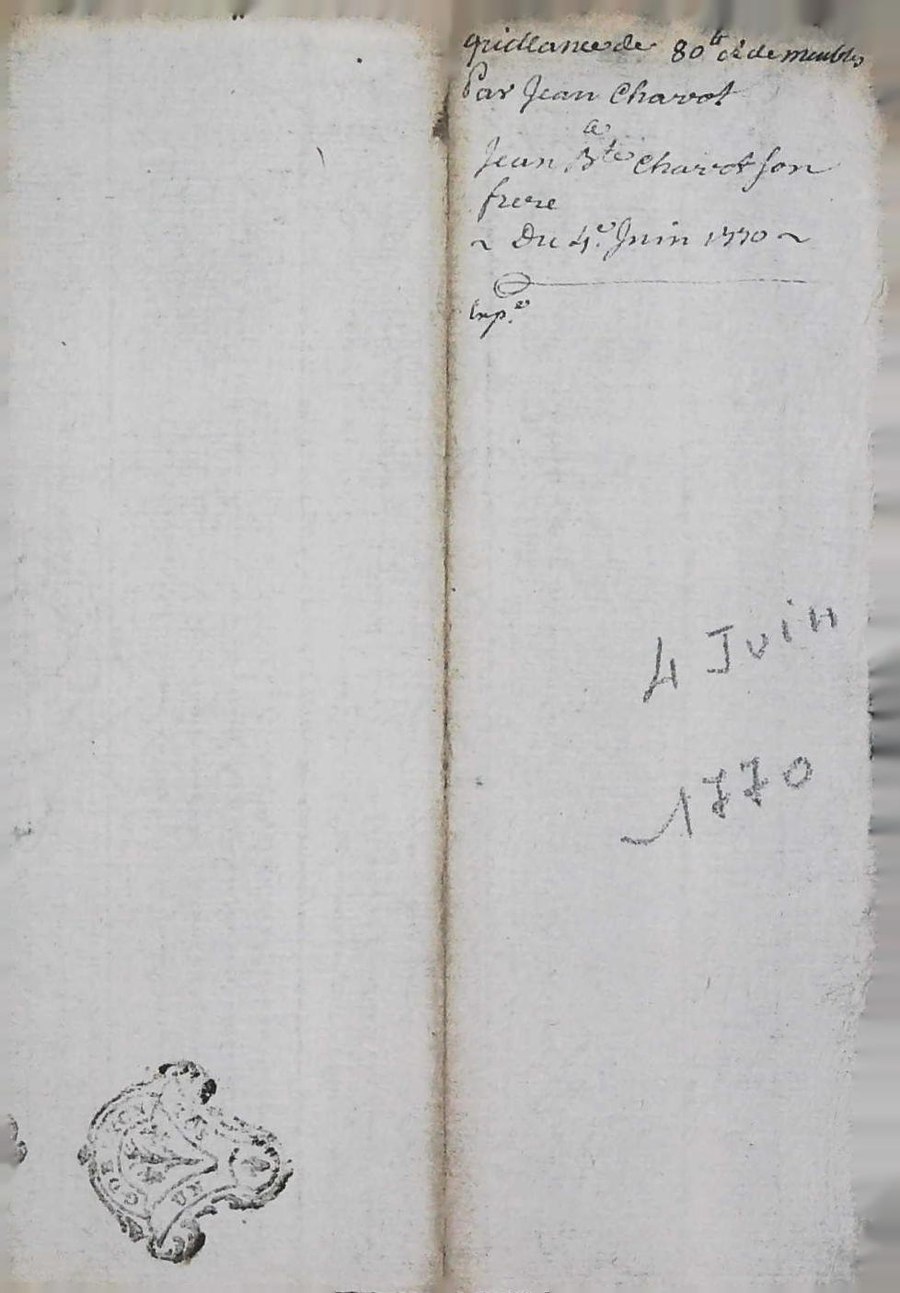 quittance de 80tt et de meubles
Par Jean Charvot
a
Jean Bte Charvot son
frere
~ Du 4e. Juin 1770 ~
Exp.e
4 Juin
1770